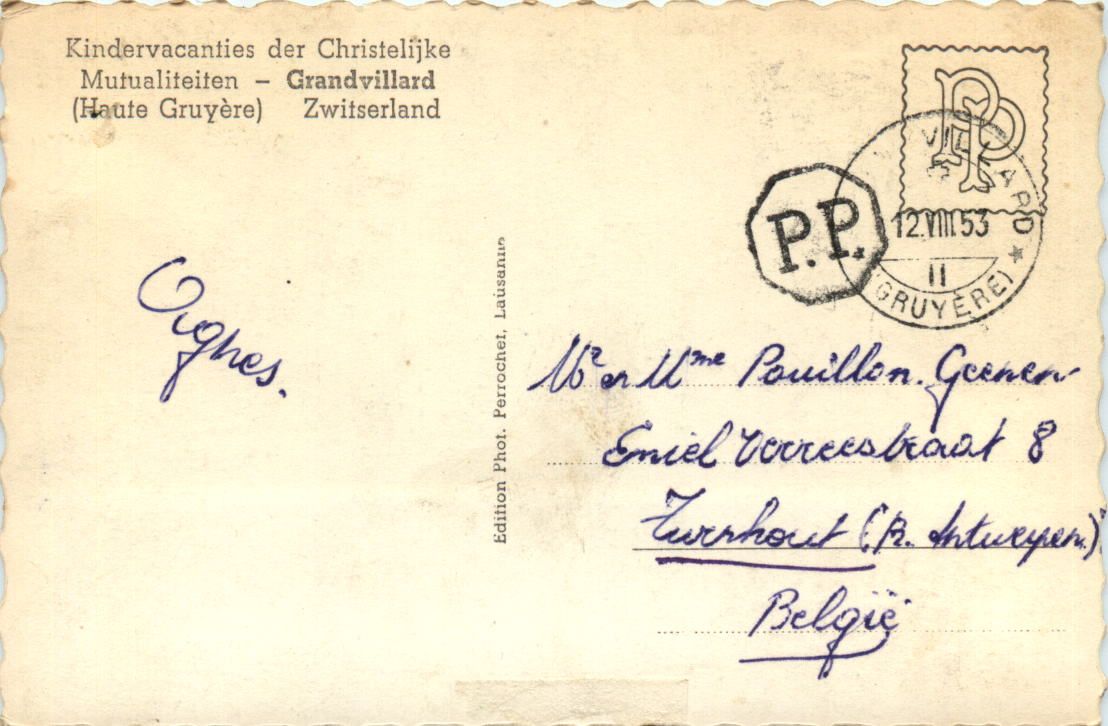 Kindervacanties der Christelijke
Mutualiteiten – Grandvillard
(Haute Gruyère) Zwitserland
PP
VILLARD
12.VIII.53
II
(GRUYÈRE)
P.P.
Edition Phot. Perrochet, Lausanne
Mr en Mme Pouillon-Geenen
Emiel Verreesstraat 8
Turnhout (Pr. Antwerpen)
België